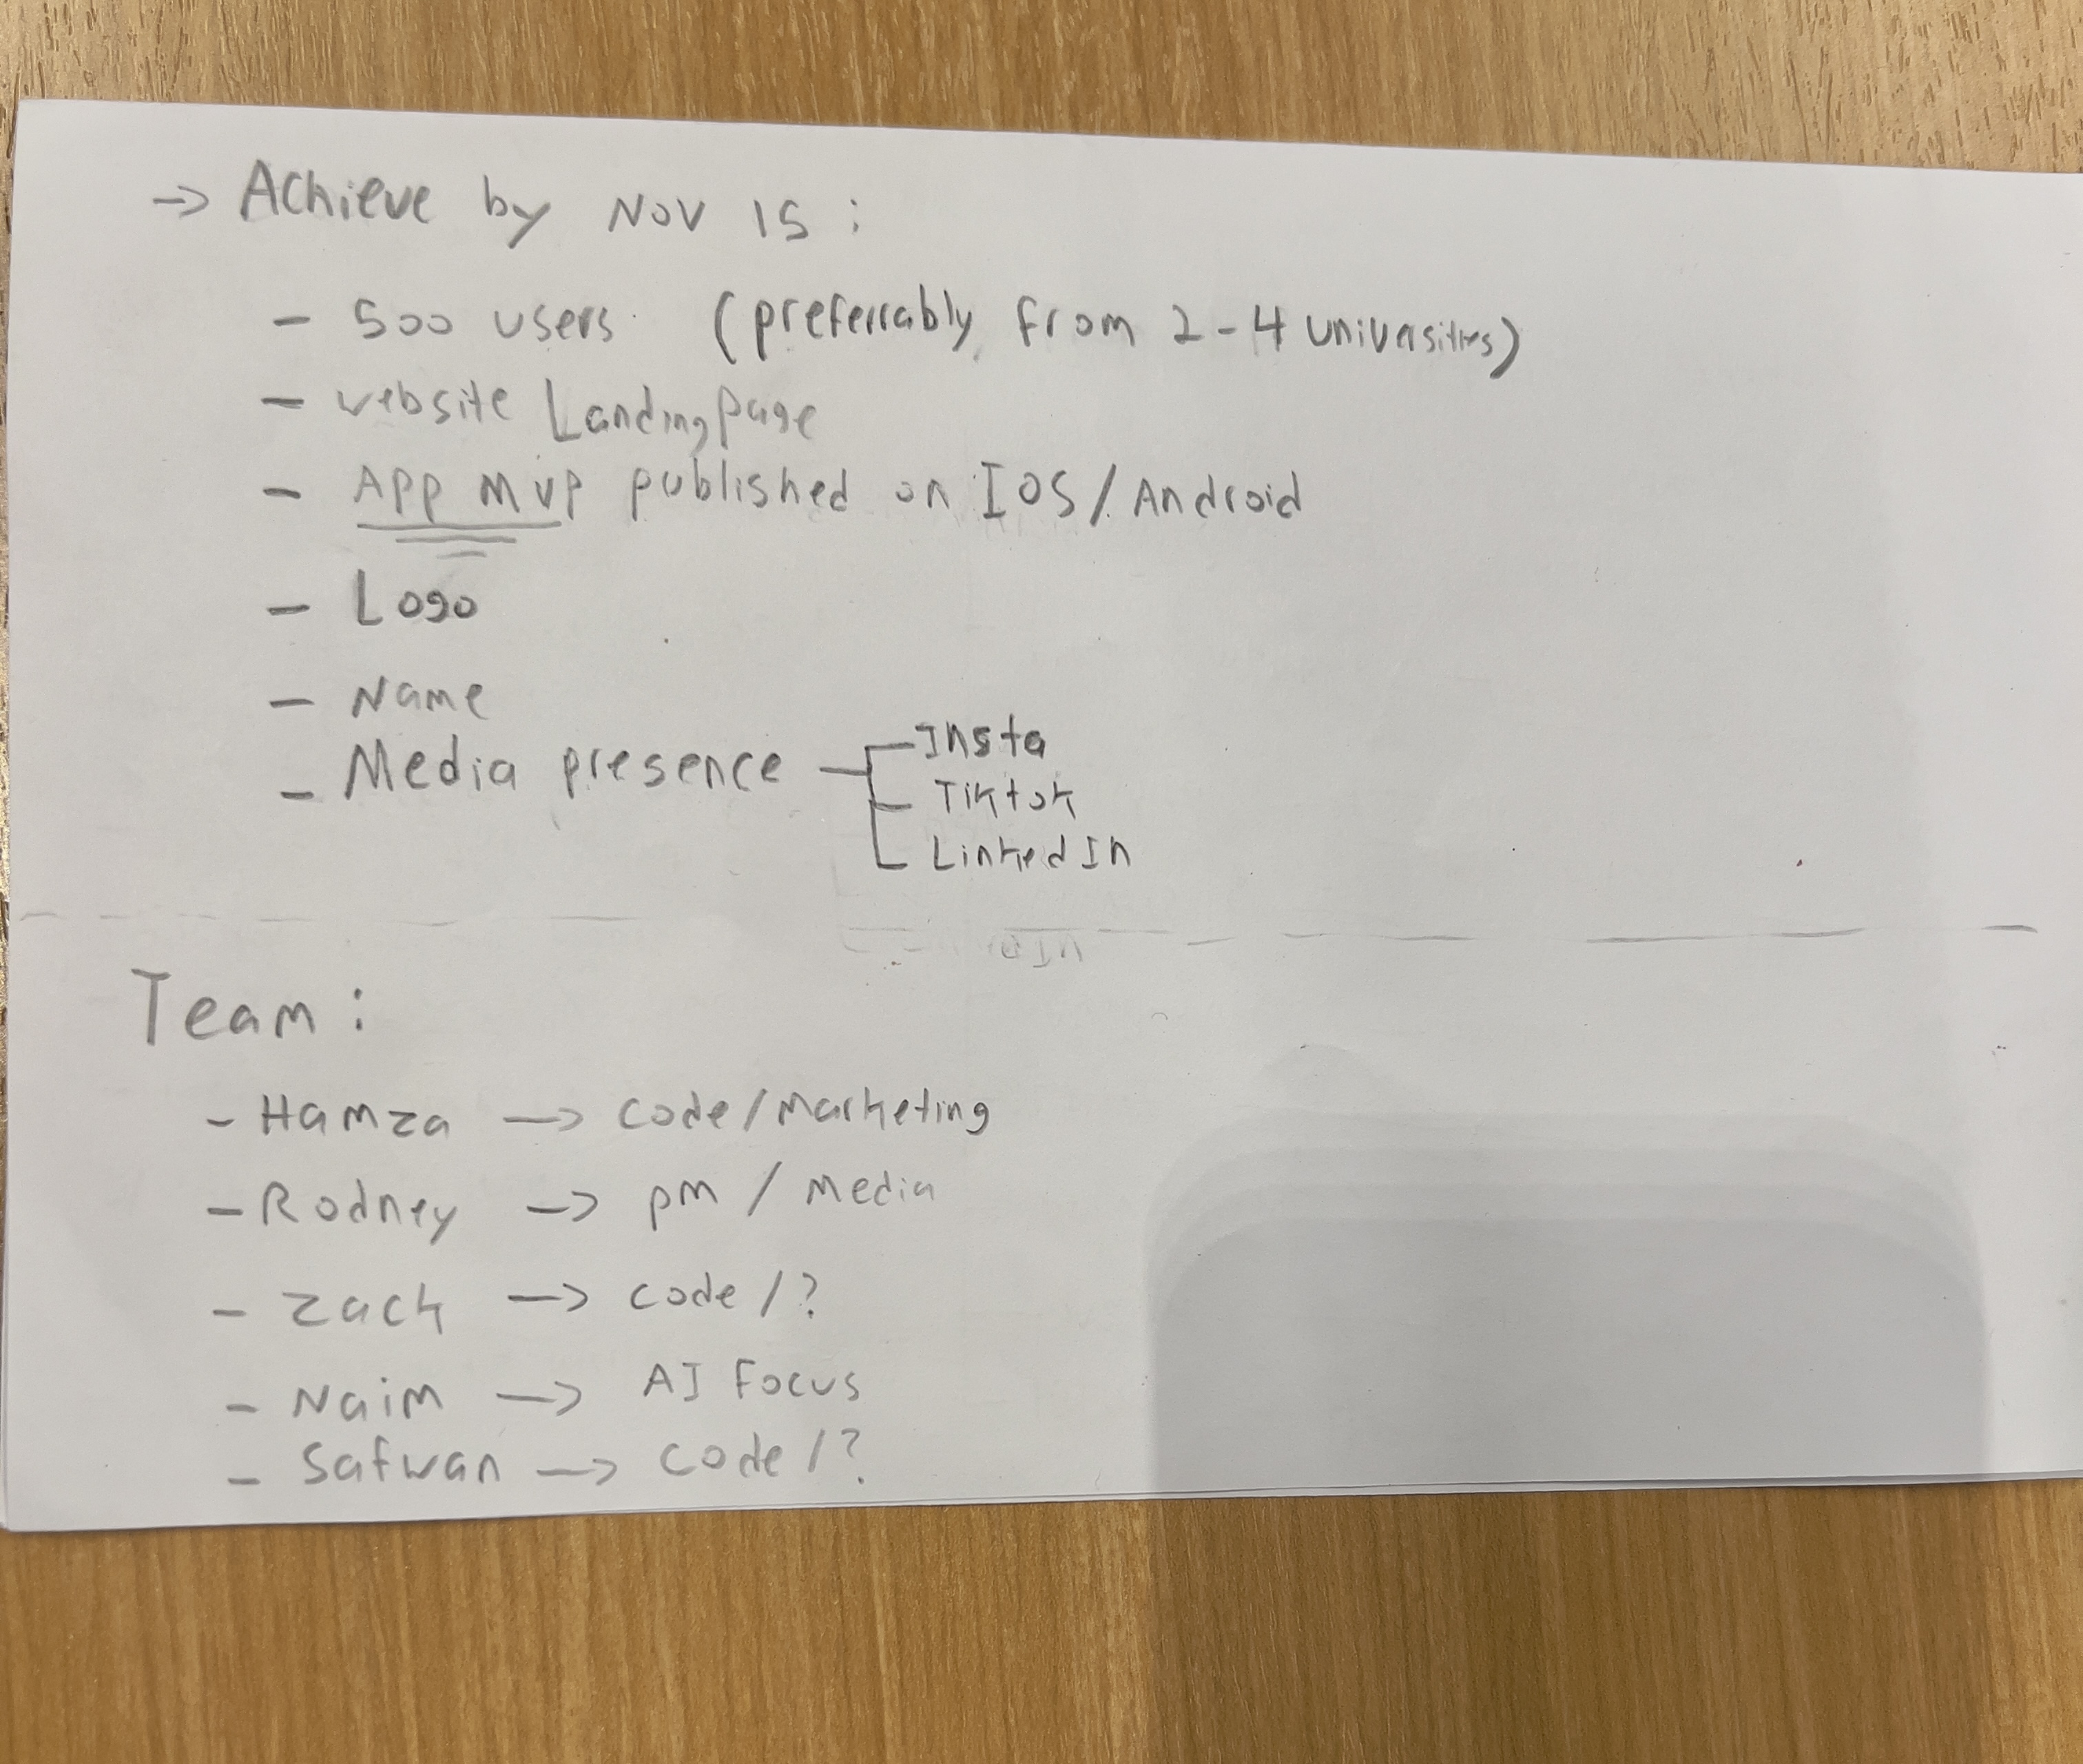 → Achieve by Nov 15 :
- 500 users (preferrably from 2-4 universities)
- website Landing Page
- App MVP published on IOS / Android
- Logo
- Name
- Media presence
Insta
Tiktok
LinkedIn
Team :
- Hamza → code / Marketing
- Rodney → pm / Media
- Zach → code / ?
- Naim → AI Focus
- Safwan → code / ?